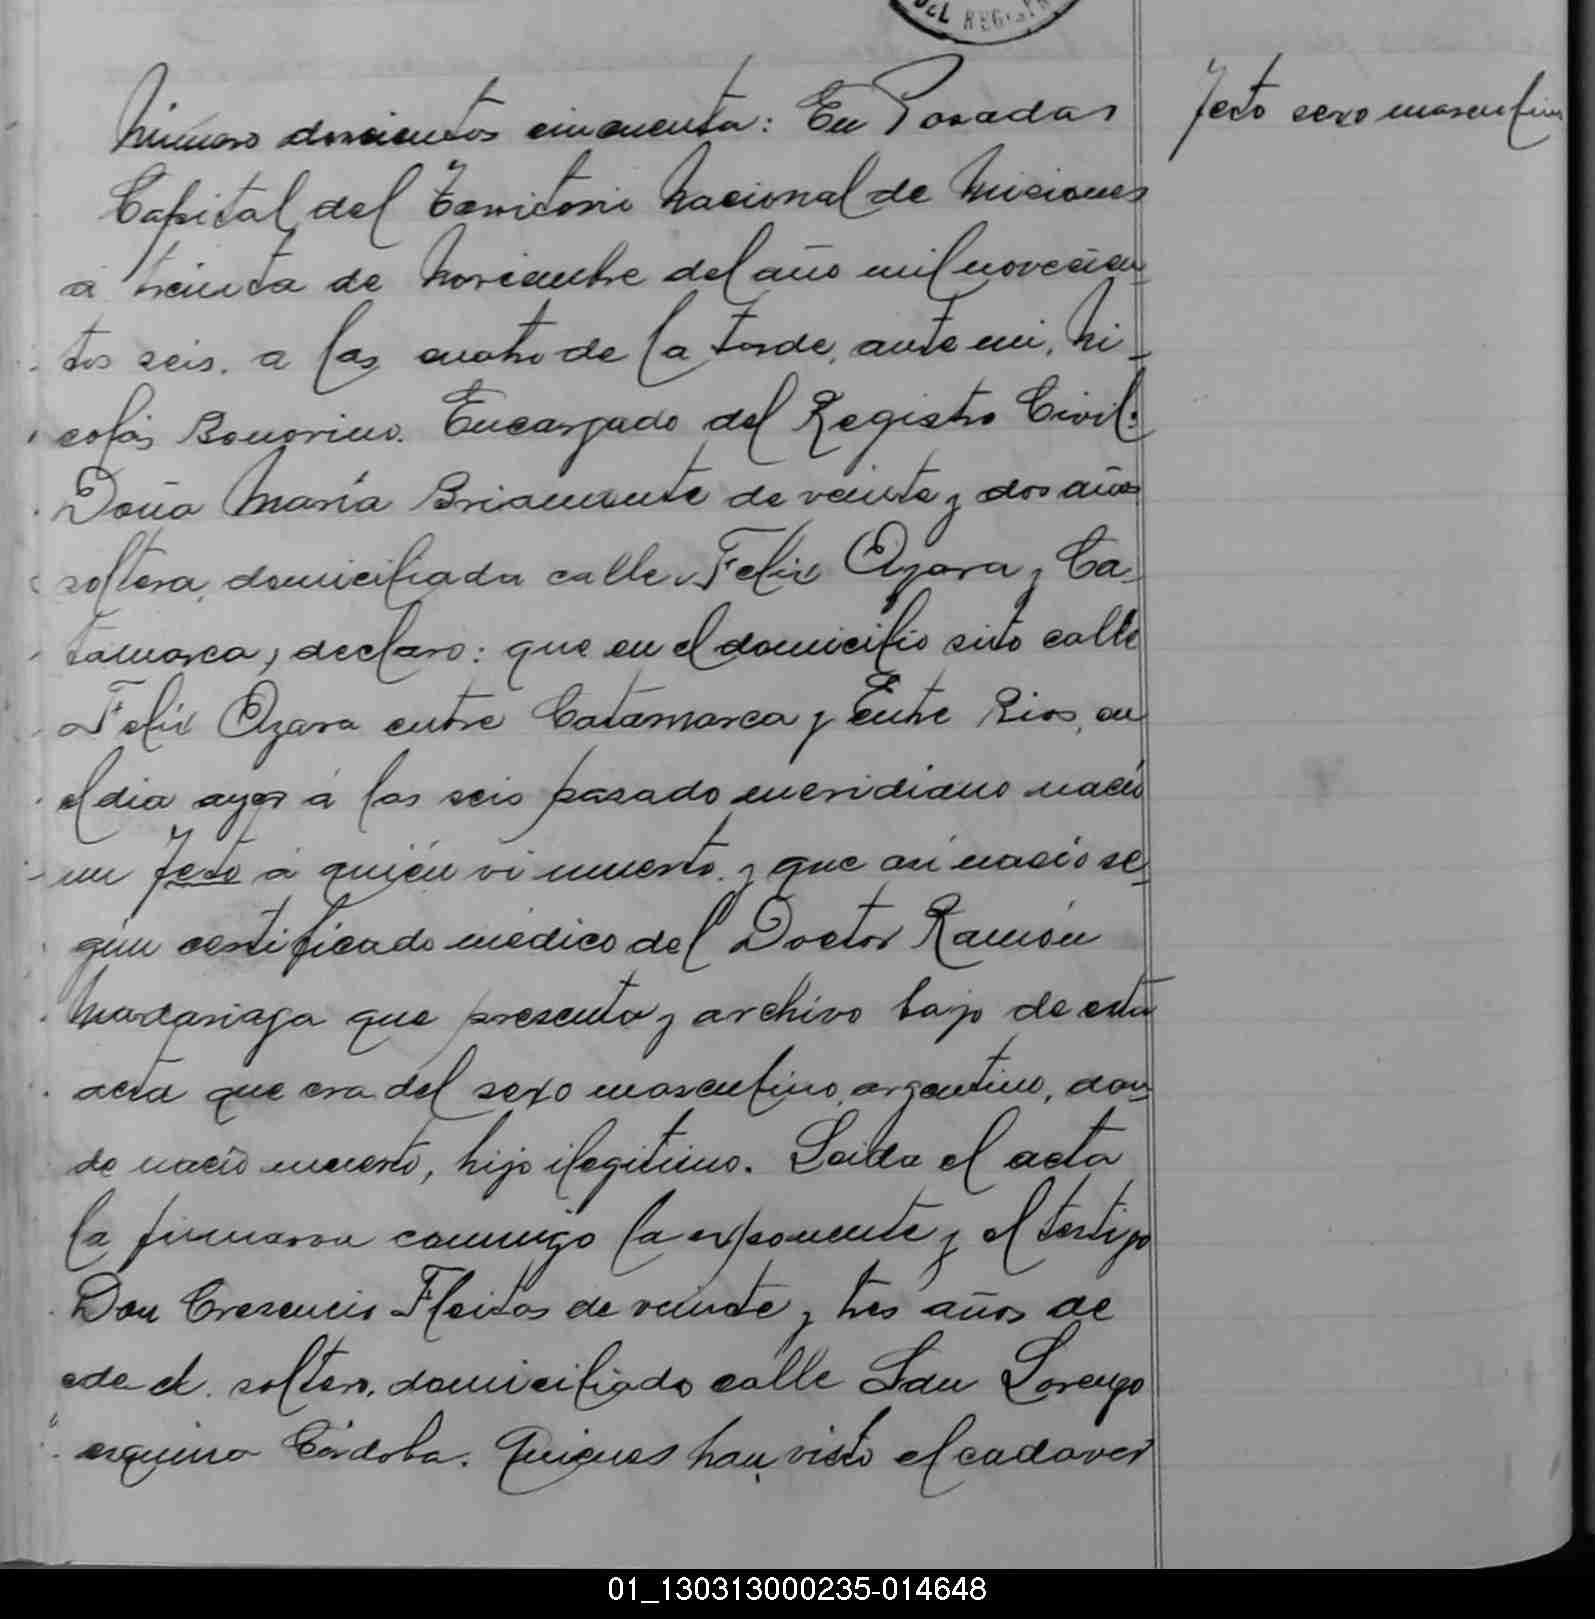 DEL REGIS
Numero doscientos cincuenta: En Posadas
Feto sexo masculino
Capital del Territorio Nacional de Misiones
á treinta de Noviembre del año mil novecien-
tos seis. a las cuatro de la tarde, ante mi, Ni-
colás Bonorino. Encargado del Registro Civil:
Doña María Briamonte de veinte y dos años
soltera, domiciliada calle Felix Azara y Ca-
tamarca, declaro: que en el domicilio sito calle
Felix Azara entre Catamarca y Entre Rios, en
el dia ayer á las seis pasado meridiano nació
un Feto á quién vi muerto. y que así nació se-
gún certificado médico del Doctor Ramón
Madariaga que presenta y archivo bajo de esta
acta que era del sexo masculino, argentino, don-
de nació muerto, hijo ilegitimo. Leida el acta
la firmaron conmigo la exponente y el testigo
Don Cresencio Fleitas de veinte y tres años de
edad. soltero, domiciliado calle San Lorenzo
esquina Córdoba. Quienes han visto el cadaver
01_130313000235-014648